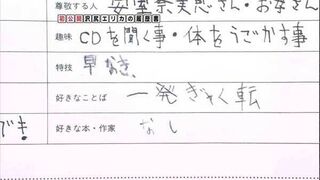 尊敬する人 安室奈美恵さん・お母さん
初公開 沢尻エリカの履歴書
趣味 CDを聞く事・体をうごかす事
特技 早なき
好きなことば 一発ぎゃく転
でき! 好きな本・作家 なし